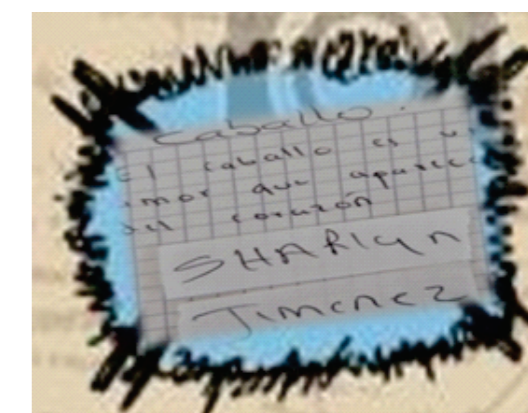 Caballo.
El caballo es u
amor que aparece
del corazón
SHARlyn
Jimenez